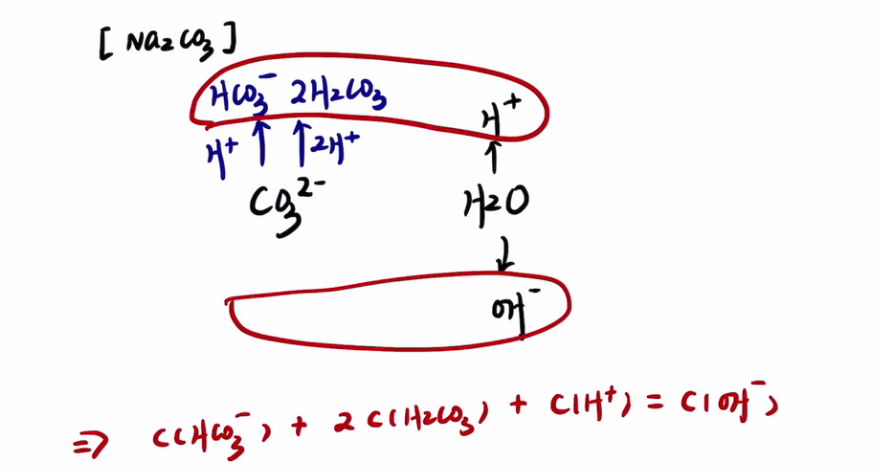 [Na₂CO₃]
HCO₃⁻ 2H₂CO₃ H⁺
H⁺ ↑ ↑ 2H⁺ ↑
CO₃²⁻ H₂O
↓
OH⁻
⇒ C(HCO₃⁻) + 2C(H₂CO₃) + C(H⁺) = C(OH⁻)